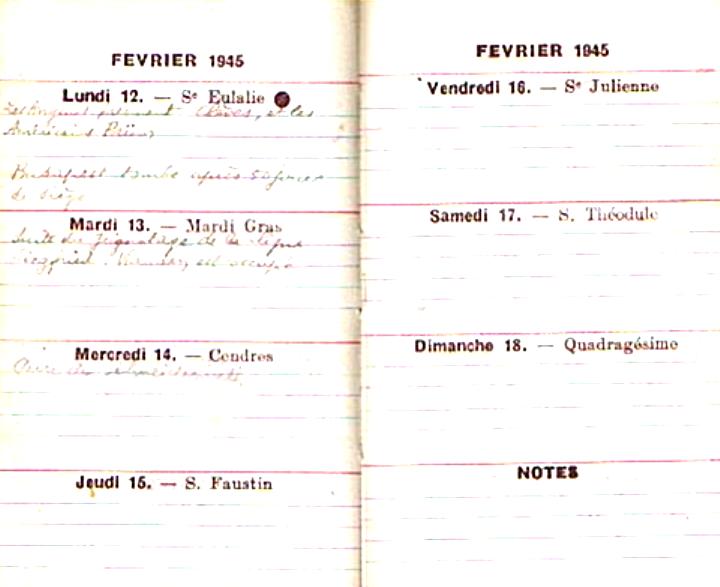 FEVRIER 1945
Lundi 12. — Sᵉ Eulalie
Les prennent Clèves, et les
Américains Prüm
Budapest tombe après 50 jours
de siège
Mardi 13. — Mardi Gras
Suite du de la ligne
Siegfried. est occupé
Mercredi 14. — Cendres
Jeudi 15. — S. Faustin
FEVRIER 1945
Vendredi 16. — Sᵉ Julienne
Samedi 17. — S. Théodule
Dimanche 18. — Quadragésime
NOTES